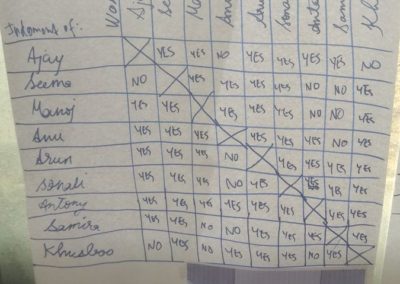 Judgment of:
Ajay YES YES NO YES YES YES YES NO
Seema NO YES YES YES YES NO NO YES
Manoj YES YES YES YES YES NO NO YES
Anu YES YES YES YES YES YES NO YES
Arun YES YES YES NO YES YES YES YES
Sonali YES YES YES NO YES YES YES YES
Antony YES YES YES YES YES YES YES YES
Samira YES YES NO NO YES YES YES YES
Khusboo NO YES NO YES YES YES NO YES